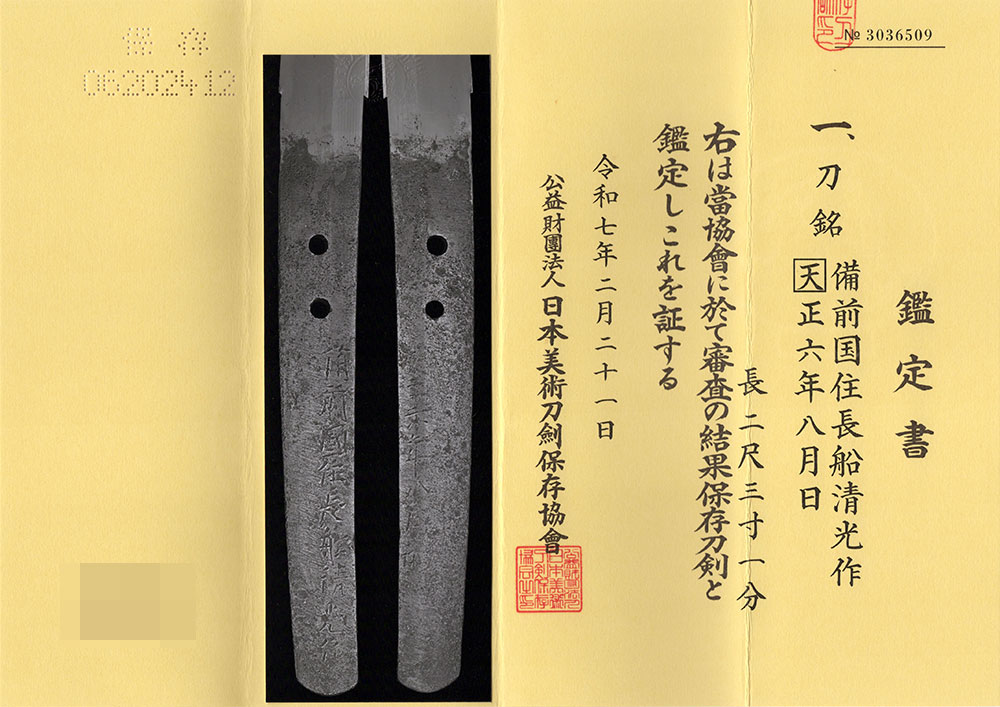 № 3036509
鑑定書
一、刀 銘 備前国住長船清光作
天正六年八月日
長二尺三寸一分
右は當協會に於て審査の結果保存刀剣と
鑑定しこれを証する
令和七年二月二十一日
公益財團法人 日本美術刀劍保存協會
保存
06202412